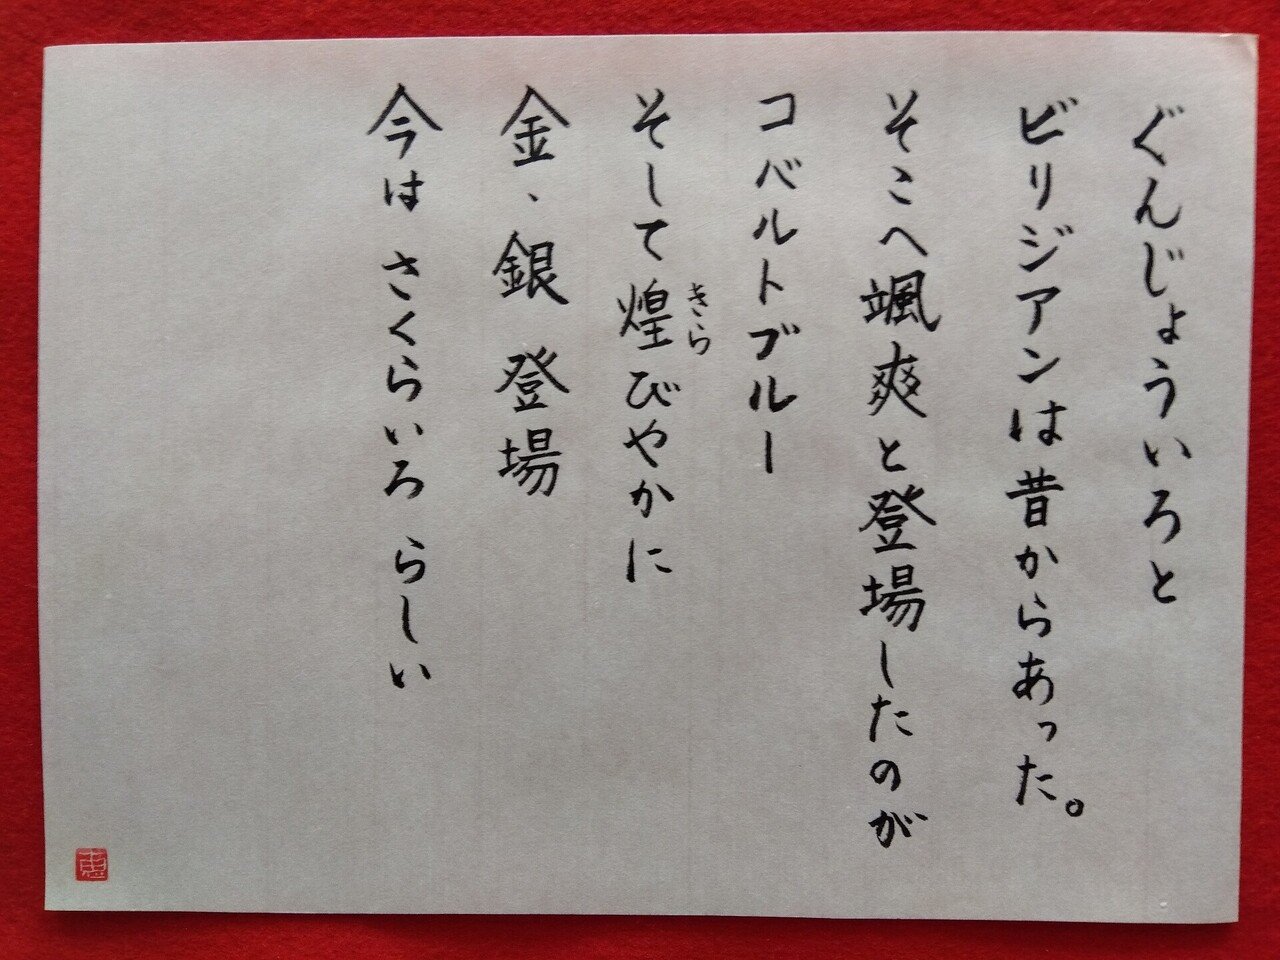 ぐんじょういろと
ビリジアンは昔からあった。
そこへ颯爽と登場したのが
コバルトブルー
そして煌びやかに
きら
金、銀 登場
今は さくらいろ らしい
恵